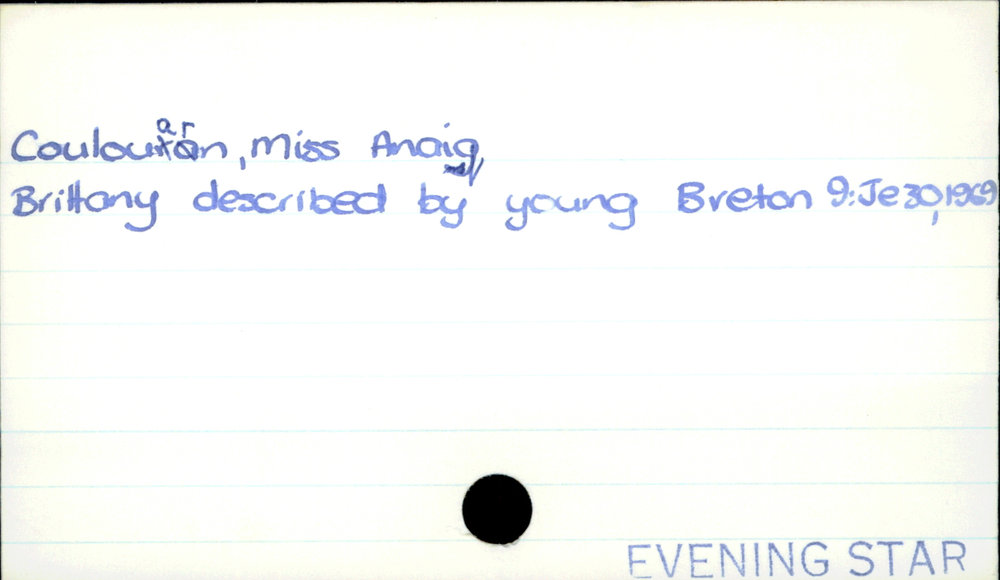 Coulouarn, Miss Anaig
Brittany described by young Breton 9:Je30,1969
EVENING STAR